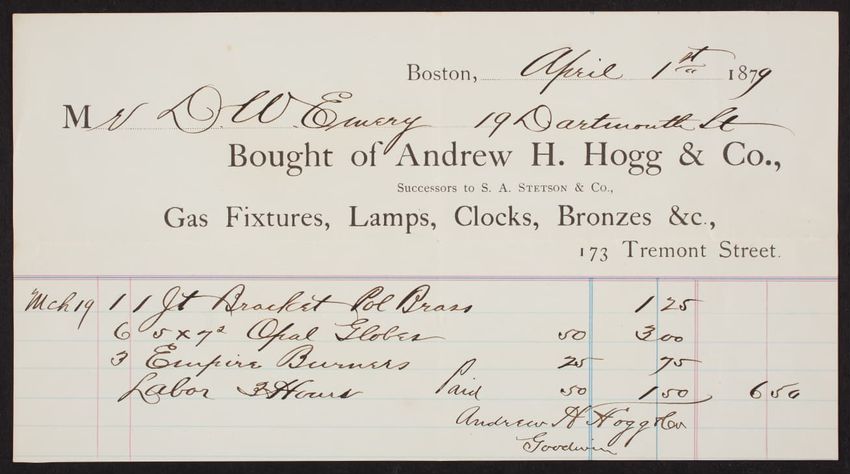 Boston, April 1st 1879
Mr D. W. Emery 19 Dartmouth St
Bought of Andrew H. Hogg & Co.,
Successors to S. A. Stetson & Co.,
Gas Fixtures, Lamps, Clocks, Bronzes &c.,
173 Tremont Street.
Mch 19 1 1 Jt Bracket Pol Brass 1 25
6 5 x 7² Opal Globes 50 3 00
3 Empire Burners 25 75
Labor 3 Hours Paid 50 1 50 6 50
Andrew H Hogg & Co
Goodwin